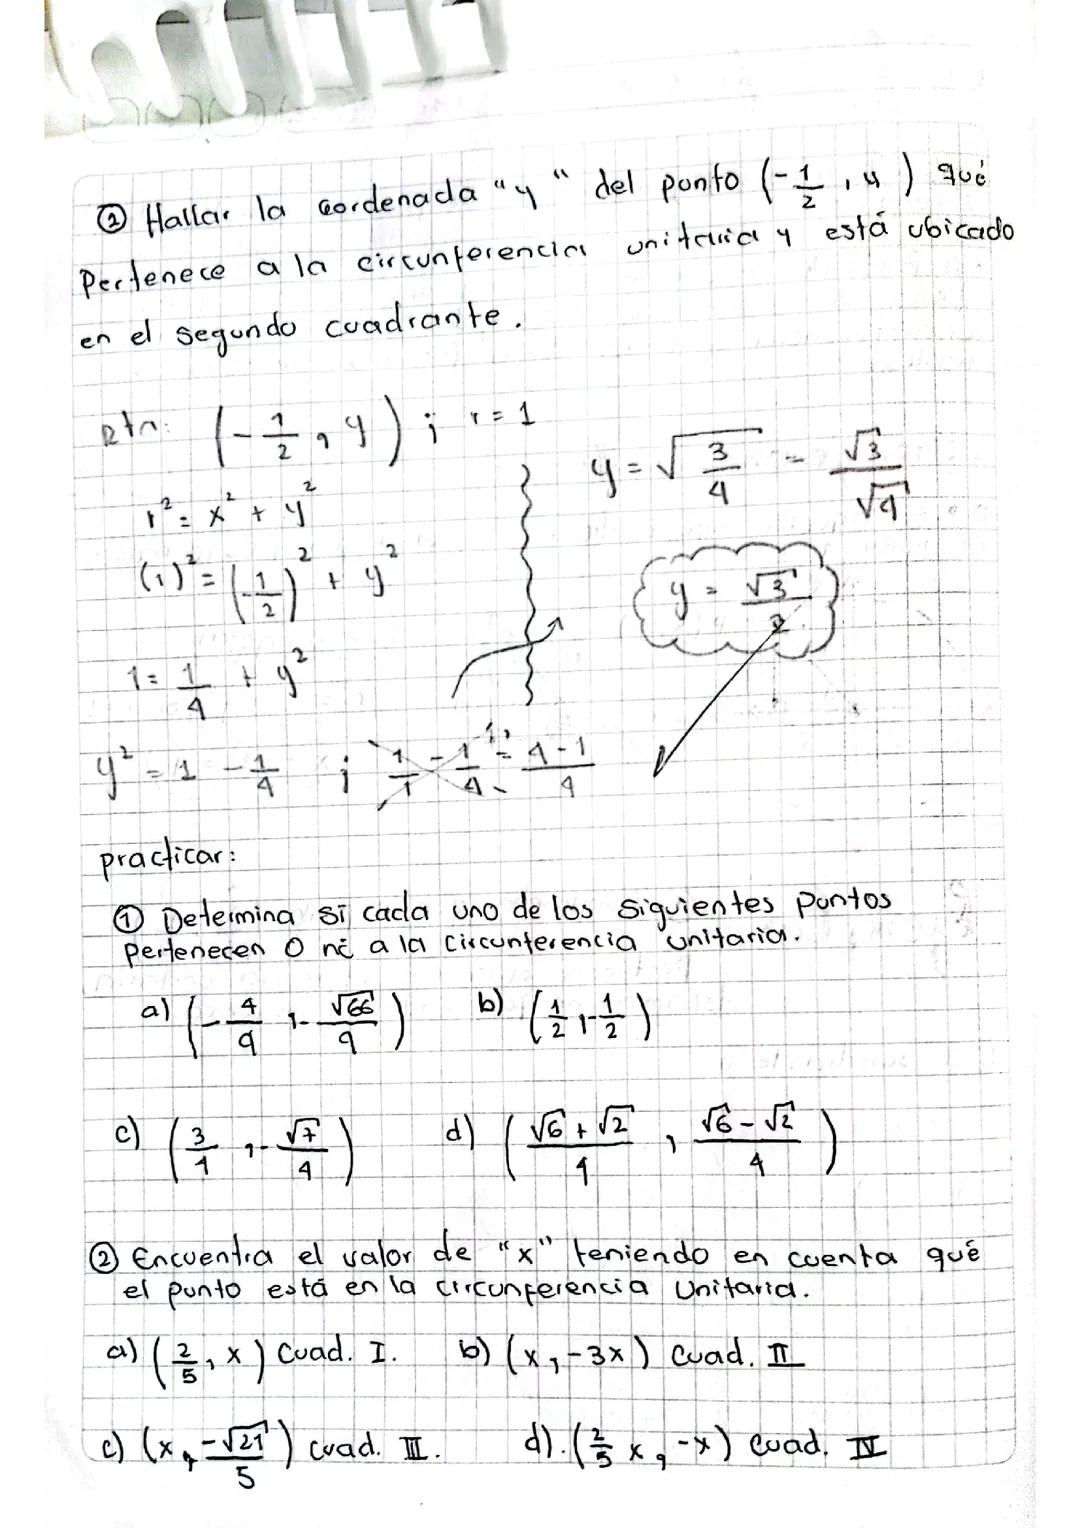 ② Hallar la cordenada "y" del punto (-1/2, y) qué
Pertenece a la circunferencia unitaria y está ubicado
en el segundo cuadrante.
Rta: (-1/2, y) ; r = 1
r² = x² + y²
(1)² = (-1/2)² + y²
1 = 1/4 + y²
y² = 1 - 1/4 ; 1/1 - 1/4 = 4-1/4
y = √3/4 = √3/√4
y = √3/2
practicar:
① Determina si cada uno de los siguientes puntos
pertenecen o no a la circunferencia unitaria.
a) (-4/9, -√66/9) b) (1/2, -1/2)
c) (3/4, -√7/4) d) (√6+√2/4, √6-√2/4)
② Encuentra el valor de "x" teniendo en cuenta qué
el punto está en la circunferencia Unitaria.
a) (2/5, x) Cuad. I. b) (x, -3x) Cuad. II
c) (x, -√21/5) cuad. III. d). (2/5 x, -x) Cuad. IV